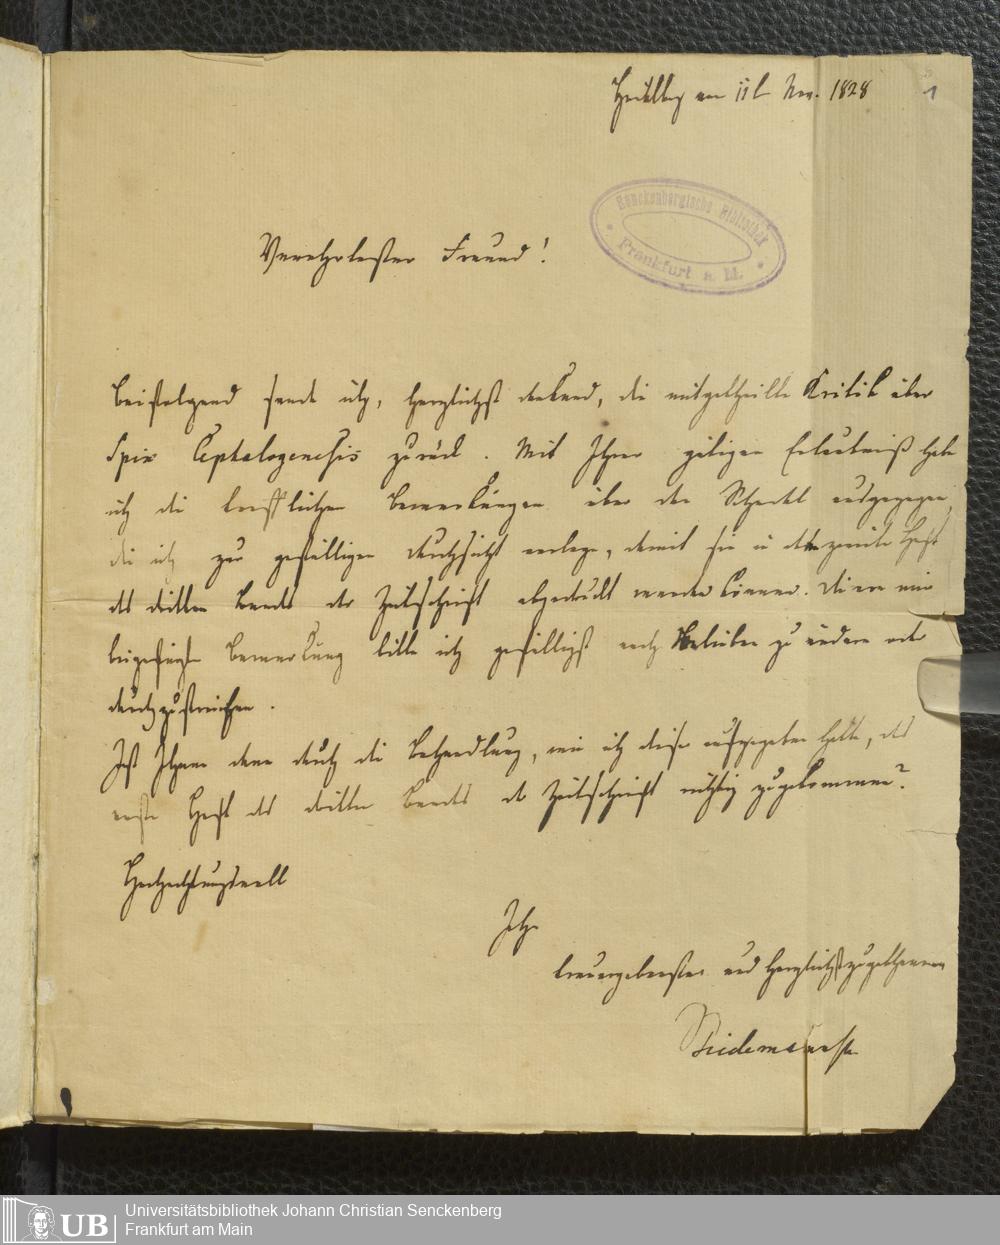 Heidelberg am 11t Nov. 1828
1
Senckenbergische Bibliothek
Frankfurt a. M.
Verehrtester Freund!
Beifolgend sende ich, herzlichst dankend, die mitgetheilte Kritik über
Spix Cephalogenesis zurück. Mit Ihrer gütigen Erlaubniß habe
ich die trefflichen Bemerkungen über den Schedel ausgezogen,
die ich zur gefälligen Durchsicht vorlege, damit sie in dem zweite Heft
des dritten Bands der Zeitschrift abgedruckt werden können. Die von mir
beigefügte Bemerkung bitte ich gefälligst nach Belieben zu ändern oder
durchzustreichen.
Ist Ihnen denn durch die Buchhandlung, wie ich dieser aufgegeben hatte, das
erste Heft des dritten Bands der Zeitschrift richtig zugekommen?
Hochachtungsvoll
Ihr
treuergebenster und herzlichst zugethaner
Tiedemann
UB
Universitätsbibliothek Johann Christian Senckenberg
Frankfurt am Main